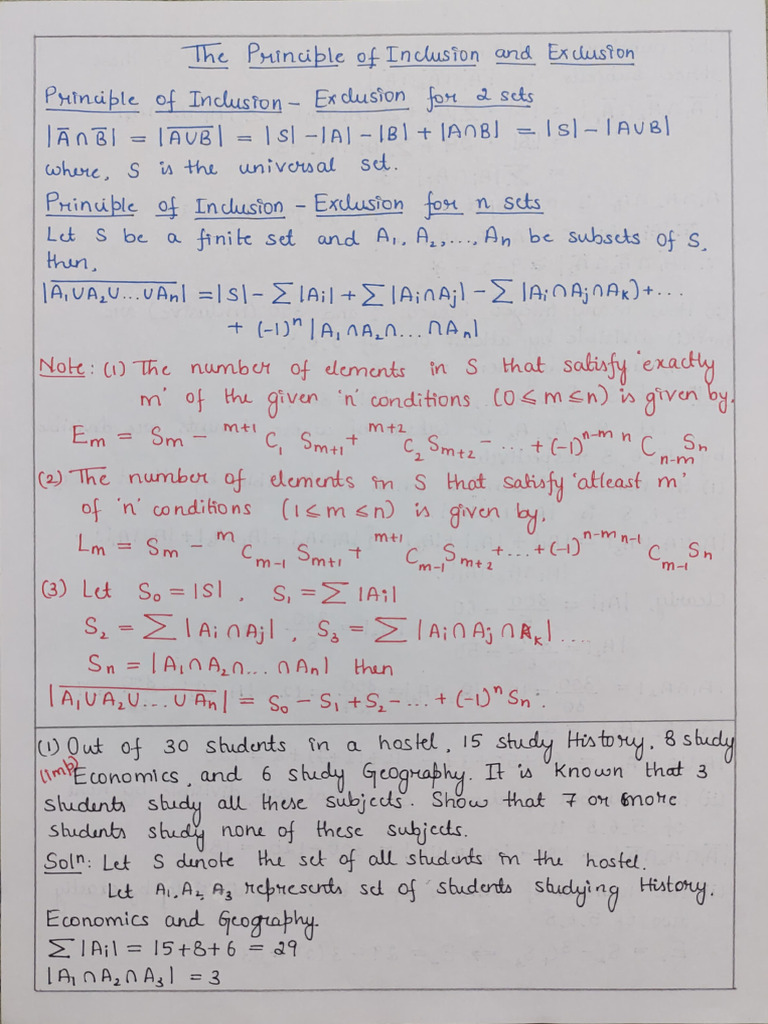 The Principle of Inclusion and Exclusion
Principle of Inclusion - Exclusion for 2 sets
|A̅∩B̅| = |A̅∪̅B̅| = |S| - |A| - |B| + |A∩B| = |S| - |A∪B|
where, S is the universal set.
Principle of Inclusion - Exclusion for n sets
Let S be a finite set and A₁, A₂, ..., Aₙ be subsets of S,
then,
|A̅₁̅∪̅A̅₂̅∪̅.̅.̅.̅∪̅A̅ₙ̅| = |S| - Σ|Ai| + Σ|Ai∩Aj| - Σ|Ai∩Aj∩Aₖ) + ...
+ (-1)ⁿ |A₁∩A₂∩...∩Aₙ|
Note: (1) The number of elements in S that satisfy 'exactly
m' of the given 'n' conditions (0 ≤ m ≤ n) is given by,
Eₘ = Sₘ - ᵐ⁺¹C₁ Sₘ₊₁ + ᵐ⁺²C₂ Sₘ₊₂ - ... + (-1)ⁿ⁻ᵐ ⁿCₙ₋ₘ Sₙ
(2) The number of elements in S that satisfy 'atleast m'
of 'n' conditions (1 ≤ m ≤ n) is given by,
Lₘ = Sₘ - ᵐCₘ₋₁ Sₘ₊₁ + ᵐ⁺¹Cₘ₋₁ Sₘ₊₂ + ... + (-1)ⁿ⁻ᵐ ⁿ⁻¹Cₘ₋₁ Sₙ
(3) Let S₀ = |S|, S₁ = Σ|Ai|
S₂ = Σ|Ai∩Aj|, S₃ = Σ|Ai∩Aj∩Aₖ| ...
Sₙ = |A₁∩A₂∩...∩Aₙ| then
|A̅₁̅∪̅A̅₂̅∪̅.̅.̅.̅∪̅A̅ₙ̅| = S₀ - S₁ + S₂ - ... + (-1)ⁿ Sₙ.
(1) Out of 30 students in a hostel, 15 study History, 8 study
(Imp) Economics, and 6 study Geography. It is known that 3
students study all these subjects. Show that 7 or more
students study none of these subjects.
Solⁿ: Let S denote the set of all students in the hostel.
Let A₁, A₂, A₃ represents set of students studying History,
Economics and Geography.
Σ|Ai| = 15+8+6 = 29
|A₁∩A₂∩A₃| = 3